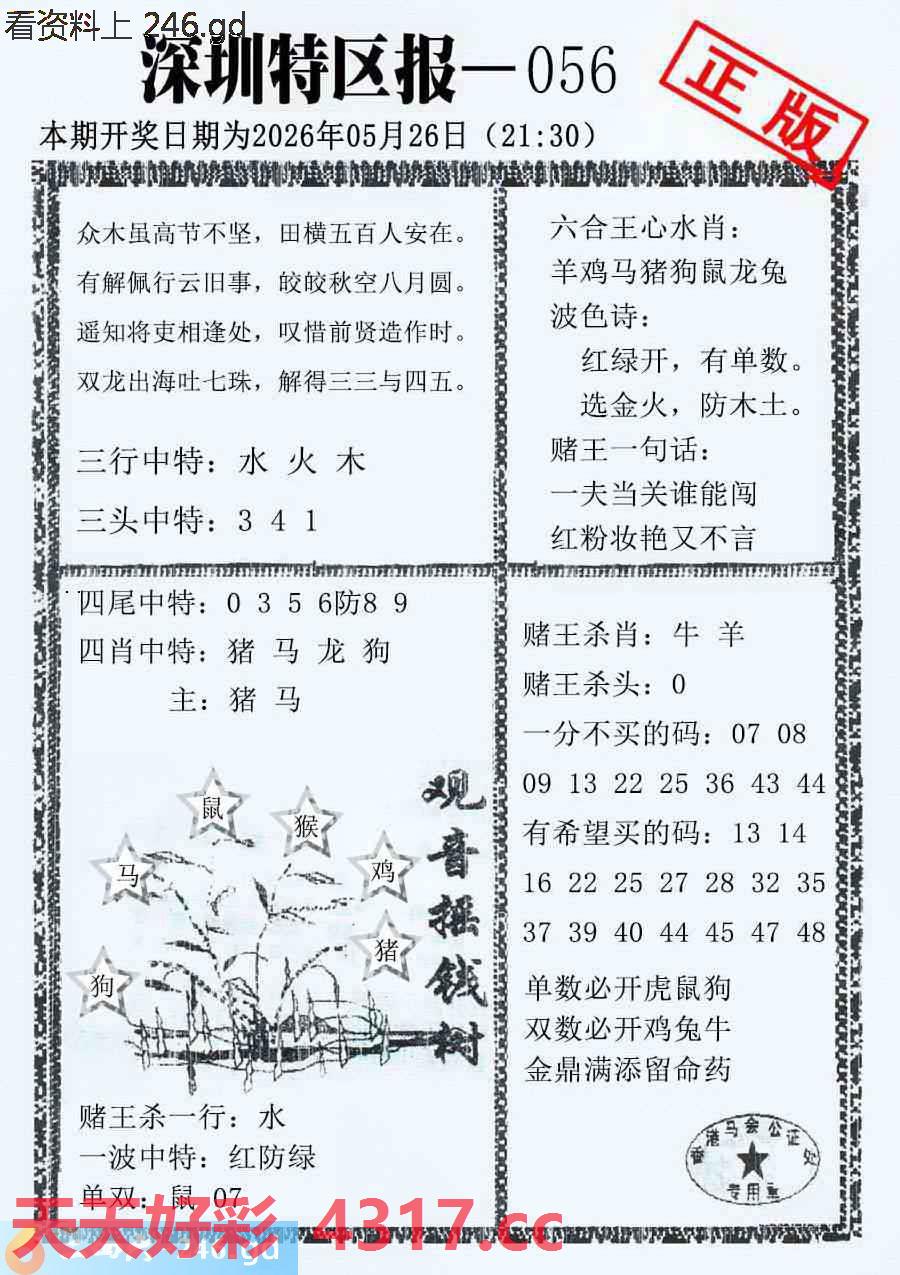 看资料上 246.gd
深圳特区报—056
正版
本期开奖日期为2026年05月26日（21:30）
众木虽高节不坚，田横五百人安在。
有解佩行云旧事，皎皎秋空八月圆。
遥知将吏相逢处，叹惜前贤造作时。
双龙出海吐七珠，解得三三与四五。
三行中特：水 火 木
三头中特：3 4 1
六合王心水肖：
羊鸡马猪狗鼠龙兔
波色诗：
红绿开，有单数。
选金火，防木土。
赌王一句话：
一夫当关谁能闯
红粉妆艳又不言
四尾中特：0 3 5 6防8 9
四肖中特：猪 马 龙 狗
主：猪 马
观音摇钱树
鼠
猴
马
鸡
猪
狗
赌王杀一行：水
一波中特：红防绿
单双：鼠 07
赌王杀肖：牛 羊
赌王杀头：0
一分不买的码：07 08
09 13 22 25 36 43 44
有希望买的码：13 14
16 22 25 27 28 32 35
37 39 40 44 45 47 48
单数必开虎鼠狗
双数必开鸡兔牛
金鼎满添留命药
香港马会公证处
专用章
天天好彩 4317.cc